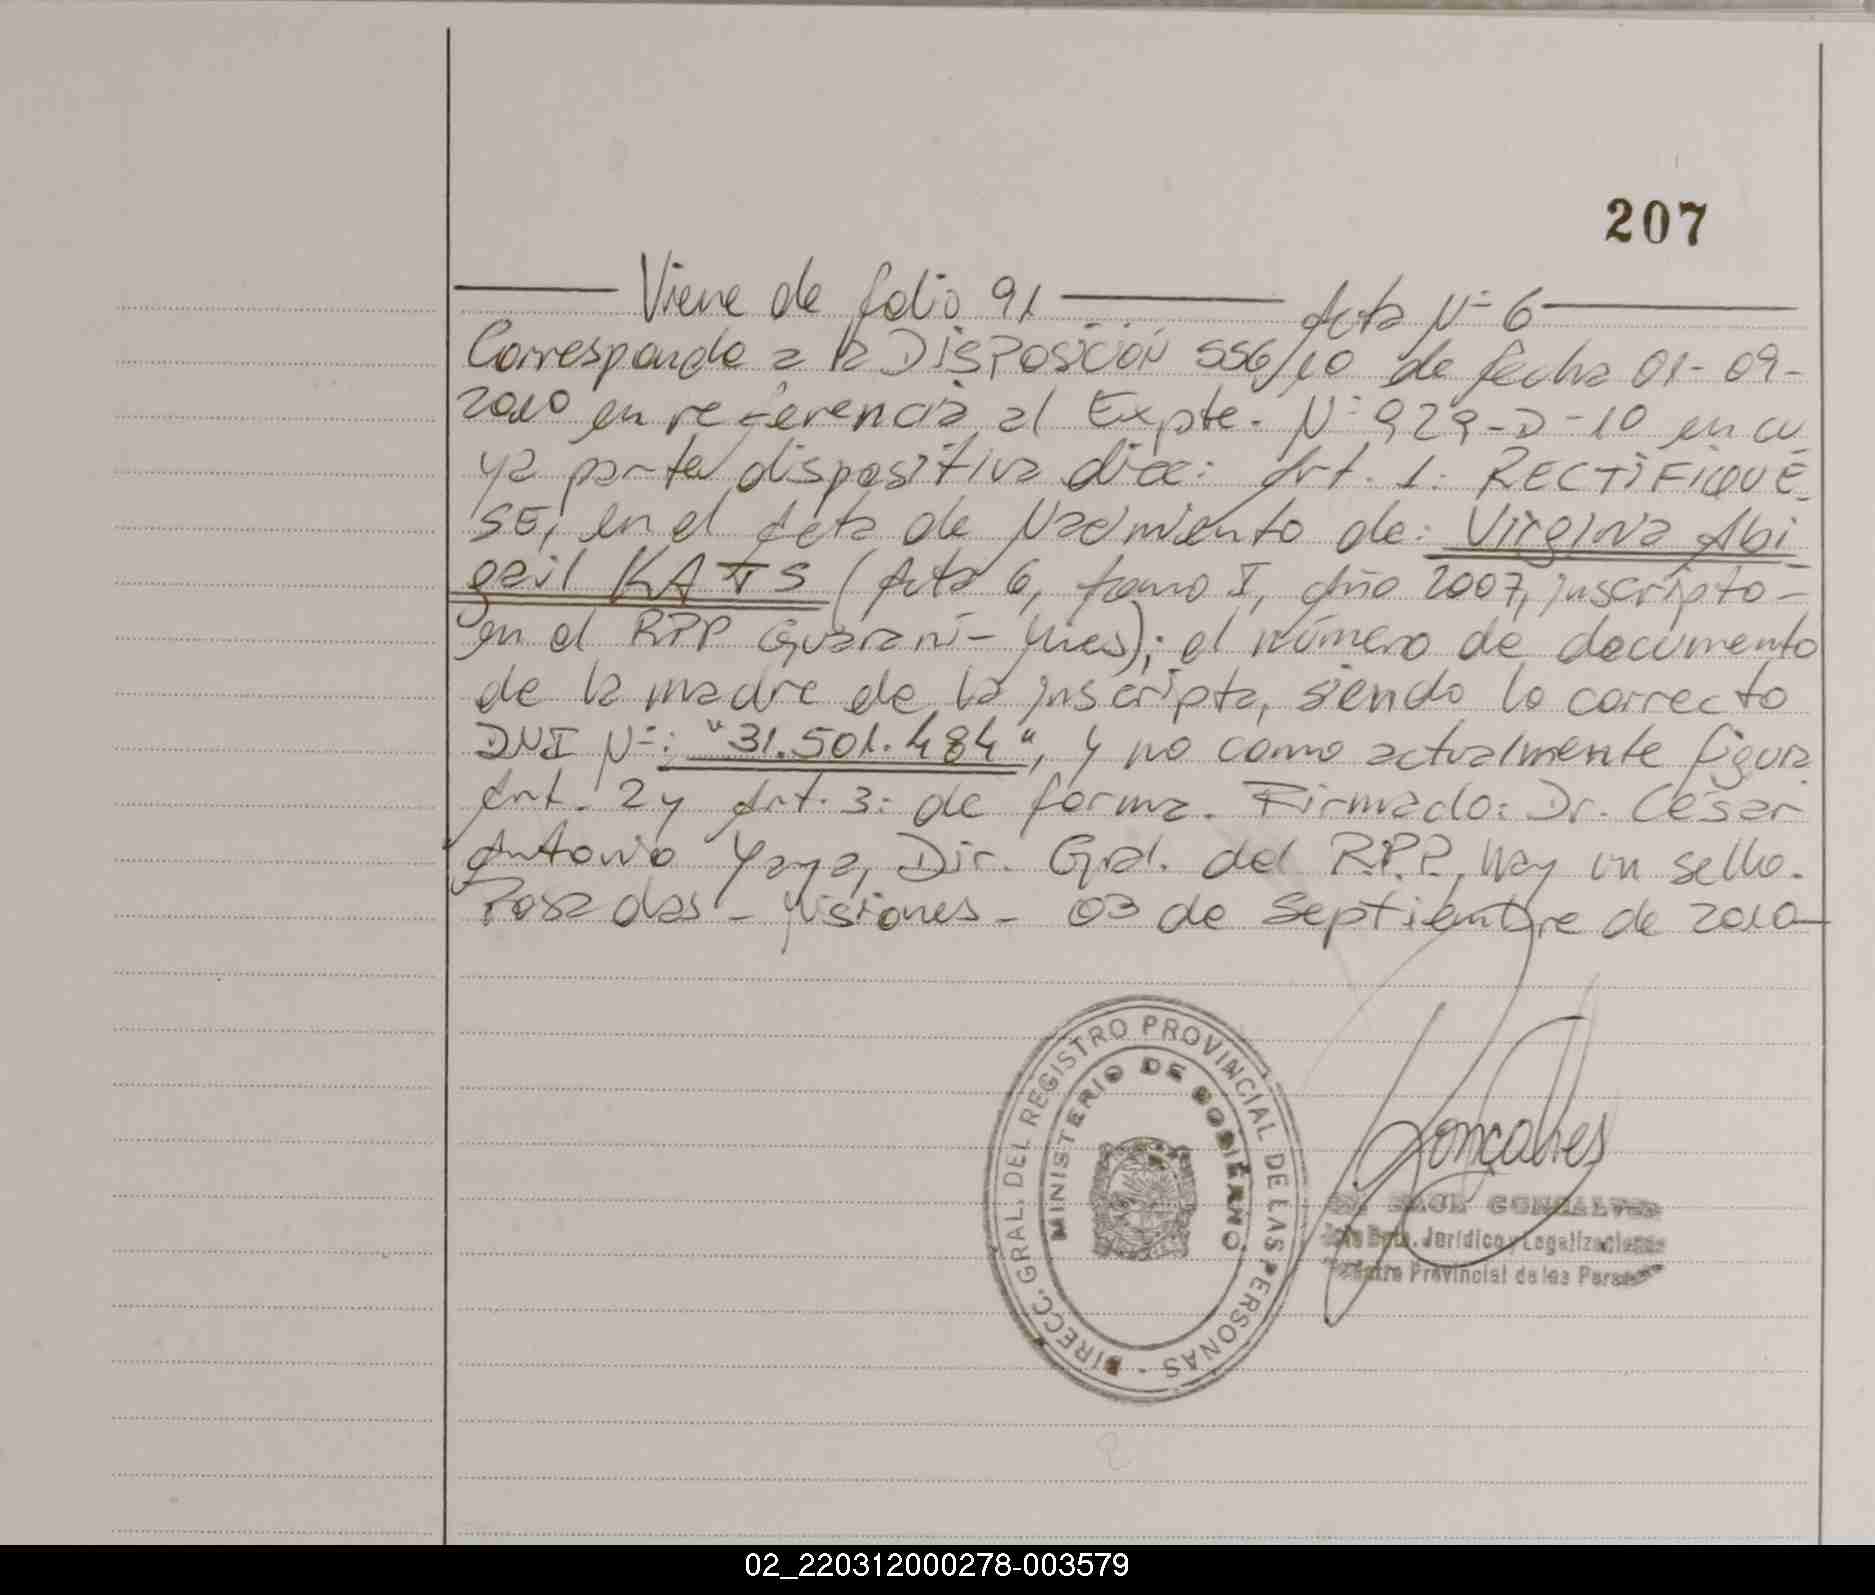 207
Viene de folio 91 Acta Nº 6
Corresponde a la DISPOSICIÓN 556/10 de fecha 01-09-
2010 en referencia al Expte. Nº 929-D-10 en cu
ya parte dispositiva dice: Art. 1: RECTIFIQUE
SE, en el Acta de Nacimiento de: Virginia Abi
gail KATS (Acta 6, tomo I, Año 2007, inscripto-
en el RPP Guaraní - Mnes); el número de documento
de la madre de la inscripta, siendo lo correcto
DNI Nº: "31.501.484", y no como actualmente figura
Art. 2 y Art. 3: de forma. Firmado: Dr. César
Antonio Yaya, Dir. Gral. del R.P.P. Hay un sello.
Posadas - Misiones - 03 de Septiembre de 2010-
DIRECC. GRAL. DEL REGISTRO PROVINCIAL DE LAS PERSONAS -
MINISTERIO DE GOBIERNO
Gonçalves
GONCALVES
Jefe Dpto. Jurídico y Legalizaciones
Registro Provincial de las Personas
02_220312000278-003579